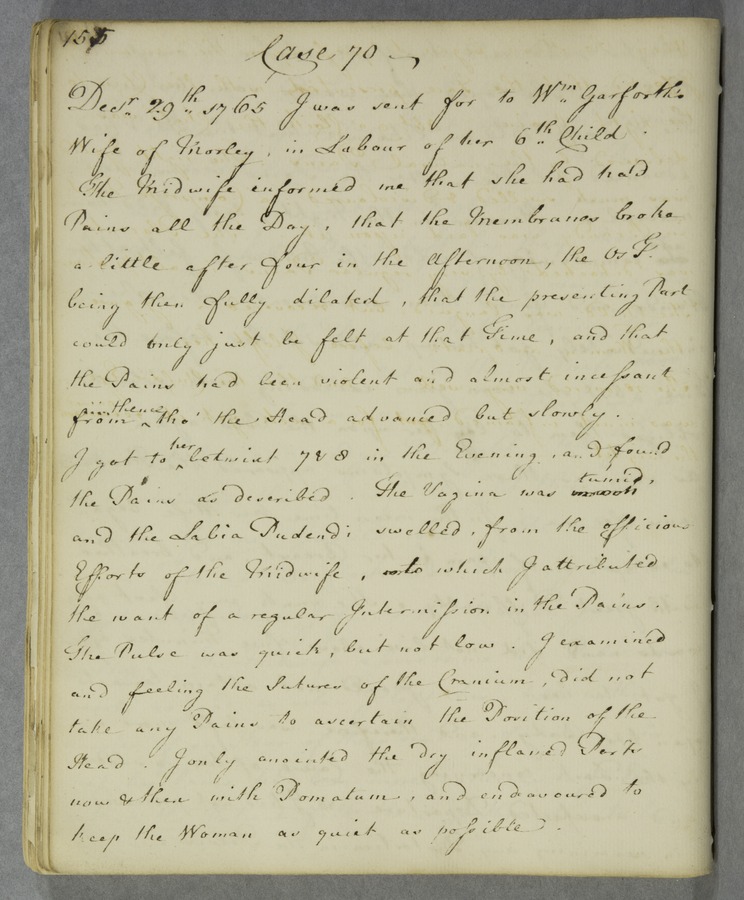 155
Case 70
Decr. 29th. 1765 I was sent for to Wm. Garforth's
Wife of Morley, in Labour of her 6th. Child.
The Midwife informed me that she had had
Pains all the Day, that the Membranes broke
a little after four in the Afternoon, the Os T.
being then fully dilated, that the presenting Part
could only just be felt at that Time, and that
the Pains had been violent and almost incessant
from thence tho' the Head advanced but slowly.
I got to her betwixt 7 & 8 in the Evening, and found
the Pains as described. The Vagina was tumid,
and the Labia Pudendi swelled, from the officious
Efforts of the Midwife, to which I attributed
the want of a regular Intermission in the Pains.
The Pulse was quick, but not low. I examined
and feeling the Sutures of the Cranium, did not
take any Pains to ascertain the Position of the
Head. I only anointed the dry inflamed Parts
now & then with Pomatum, and endeavoured to
keep the Woman as quiet as possible.